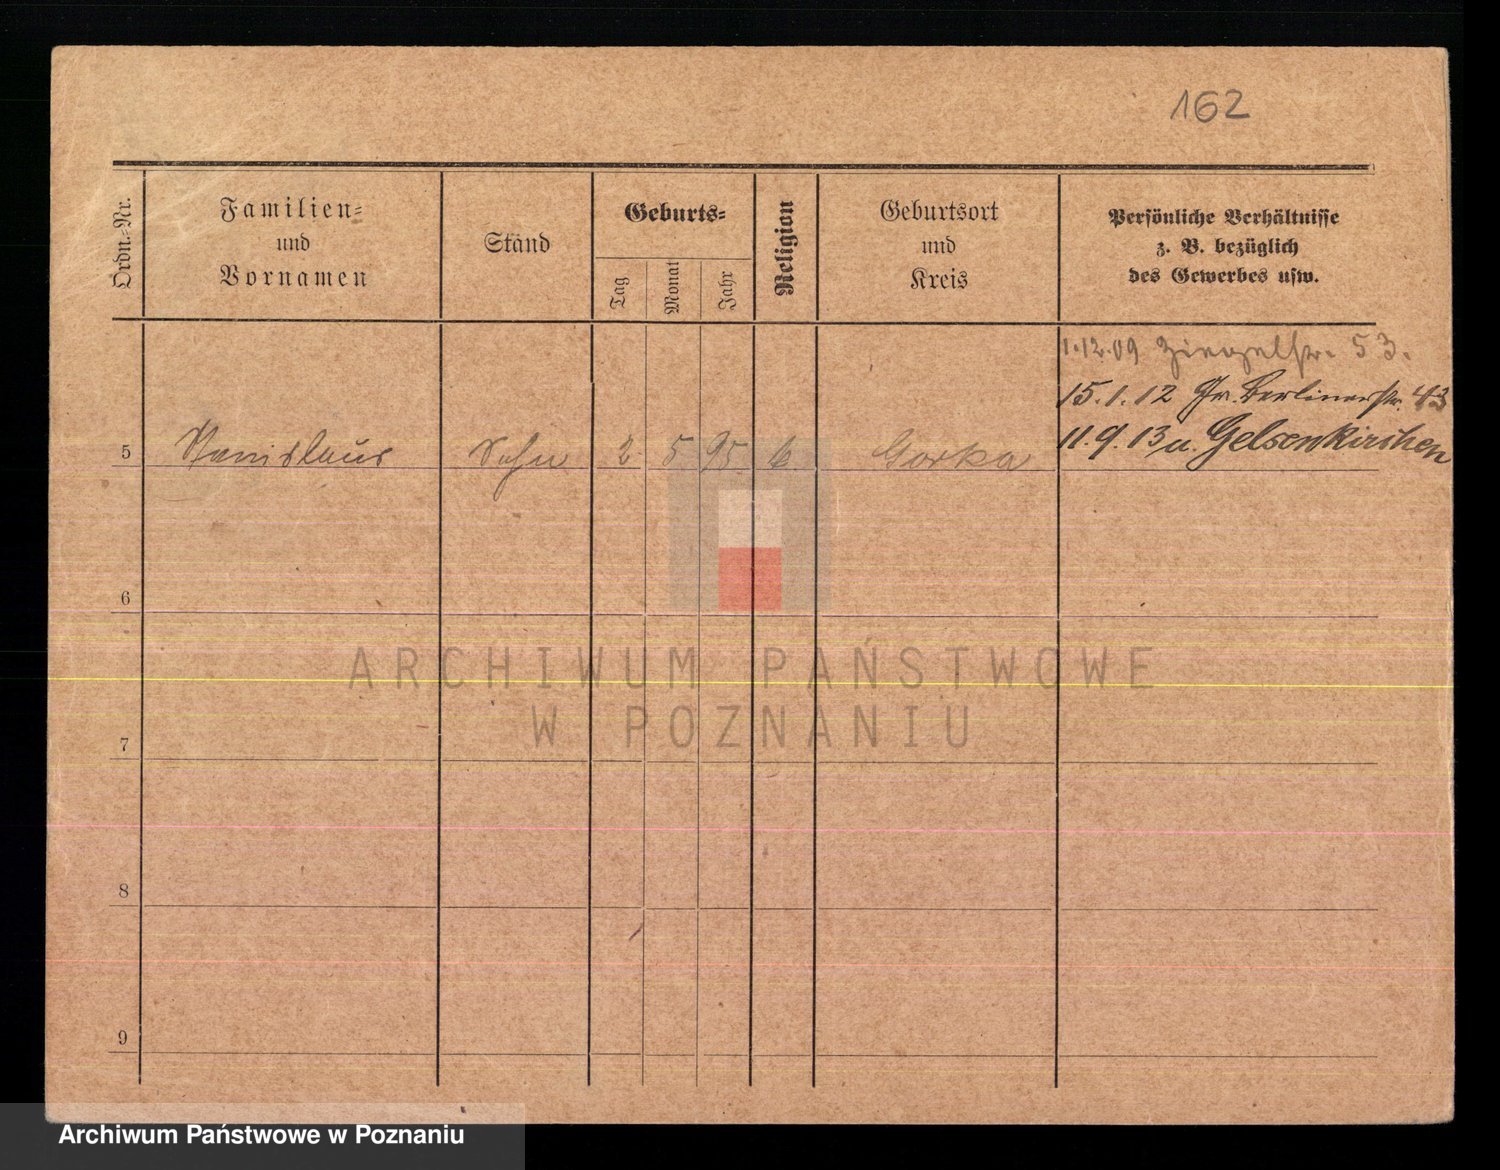 162
Ordn.-Nr.
Familien-
und
Vornamen
Stand
Geburts-
Tag
Monat
Jahr
Religion
Geburtsort
und
Kreis
Persönliche Verhältnisse
z. B. bezüglich
des Gewerbes usw.
1.12.09 Ziegelstr. 53.
15.1.12 Gr. Berlinerstr. 43
11.9.13 n. Gelsenkirchen
5 Stanislaus Sohn 2 5 95 k Gorka
6
7
8
9
ARCHIWUM PAŃSTWOWE
W POZNANIU
Archiwum Państwowe w Poznaniu